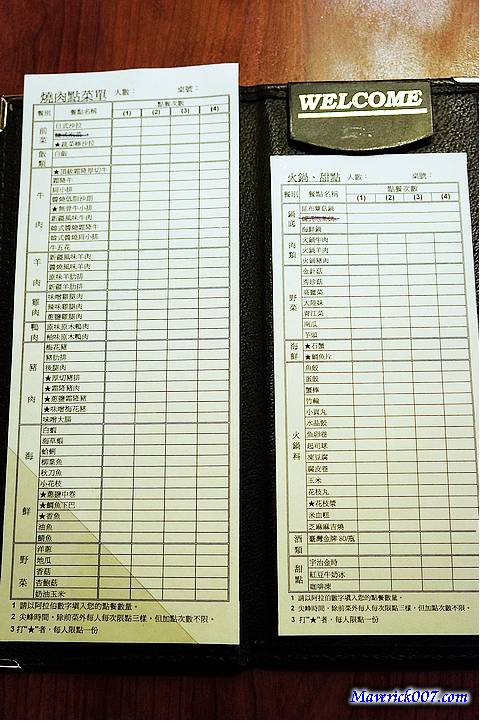 燒肉點菜單 人數： 桌號：
餐別 餐點名稱 點餐次數
(1) (2) (3) (4)
前菜
日式沙拉
★蔬菜棒沙拉
飯類
白飯
牛肉
★頂級霜降厚切牛
霜降牛
肩小排
醬燒低脂沙朗
★無骨牛小排
新疆風味牛肉
韓式醬燒霜降牛
韓式醬燒肩小排
牛五花
羊肉
新疆風味羊肉
醬燒風味羊肉
原味羊肋排
新疆羊肋排
雞肉
味噌雞腿肉
辣味雞腿肉
蔥鹽雞腿肉
鴨肉
原味原木鴨肉
柚味原木鴨肉
豬肉
梅花豬
豬肋排
後腿肉
★厚切豬排
★霜降豬肉
★蔥鹽霜降豬
★味噌梅花豬
味噌大腸
海鮮
白蝦
海草蝦
蛤蜊
柳葉魚
秋刀魚
小花枝
★蔥鹽中卷
★鯛魚下巴
★香魚
油魚
鯖魚
野菜
洋蔥
地瓜
香菇
杏鮑菇
奶油玉米
1 請以阿拉伯數字填入您的點餐數量。
2 尖峰時間，除前菜外每人每次限點三樣，但加點次數不限。
3 打"★"者，每人限點一份
WELCOME
火鍋、甜點 人數： 桌號：
餐別 餐點名稱 點餐次數
(1) (2) (3) (4)
鍋底
昆布蕈菇鍋
海鮮鍋
肉類
火鍋牛肉
火鍋羊肉
火鍋豬肉
野菜
金針菇
秀珍菇
高麗菜
大陸妹
青江菜
南瓜
芋頭
海鮮
★石蟹
★鯛魚片
火鍋料
魚餃
蛋餃
蟹棒
竹輪
小貢丸
水晶餃
魚卵卷
起司球
凍豆腐
腐皮卷
玉米
花枝丸
★花枝漿
米血糕
芝麻麻吉燒
酒類
臺灣金牌 80/瓶
甜點
宇治金時
紅豆牛奶冰
咖啡凍
1 請以阿拉伯數字填入您的點餐數量。
2 尖峰時間，除前菜外每人每次限點三樣，但加點次數不限。
3 打"★"者，每人限點一份
Maverick007.com